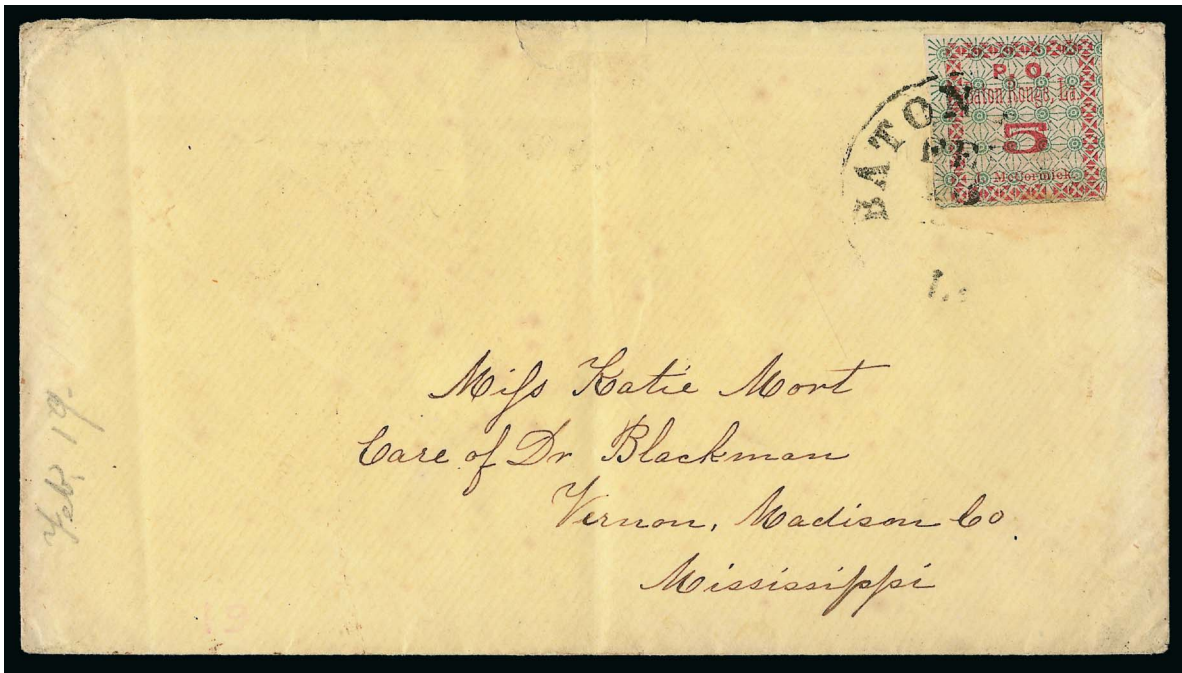 P. O.
Baton Rouge, La.
5
J. McCormick
BATON
La
Miſs Katie Mort
Care of Dr Blackman
Vernon, Madison Co.
Mississippi
Feb. 19.